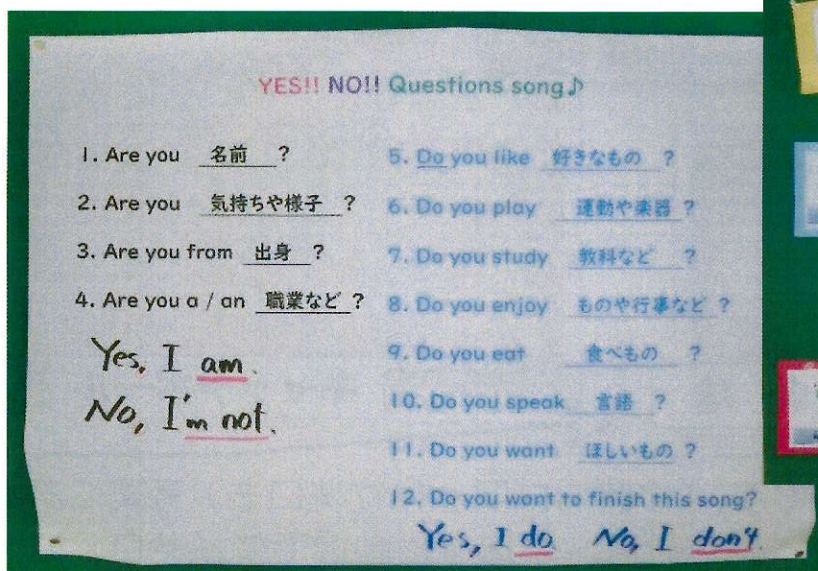 YES!! NO!! Questions song♪
1. Are you 名前 ?
2. Are you 気持ちや様子 ?
3. Are you from 出身 ?
4. Are you a / an 職業など ?
Yes, I am.
No, I'm not.
5. Do you like 好きなもの ?
6. Do you play 運動や楽器 ?
7. Do you study 教科など ?
8. Do you enjoy ものや行事など ?
9. Do you eat 食べもの ?
10. Do you speak 言語 ?
11. Do you want ほしいもの ?
12. Do you want to finish this song?
Yes, I do No, I don't.